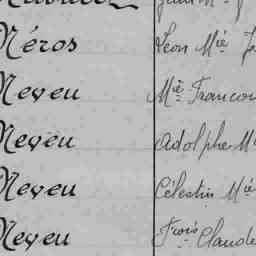 Néros Léon Mie
Neveu Mie Françoi
Neveu Adolphe M
Neveu Célestin Mie
Neveu Frois Claude